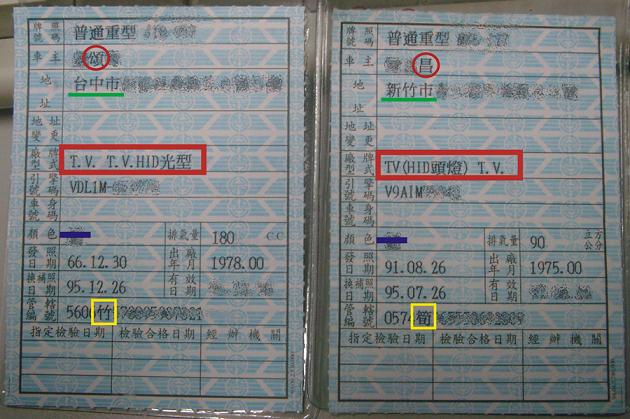 牌照號碼 普通重型
車主 頌
地址 台中市
地址變更
廠牌型式 T.V. T.V.HID光型
引擎車身號碼 VDL1M-
顏色 排氣量 180 CC
發照日期 66.12.30 出廠年月 1978.00
換補照日期 95.12.26 有效日期
管轄編號 5606竹
指定檢驗日期 檢驗合格日期 經辦機關
牌照號碼 普通重型
車主 昌
地址 新竹市
地址變更
廠牌型式 TV(HID頭燈) T.V.
引擎車身號碼 V9A1M
顏色 排氣量 90 立方公分
發照日期 91.08.26 出廠年月 1975.00
換補照日期 95.07.26 有效日期
管轄編號 0574
指定檢驗日期 檢驗合格日期 經辦機關